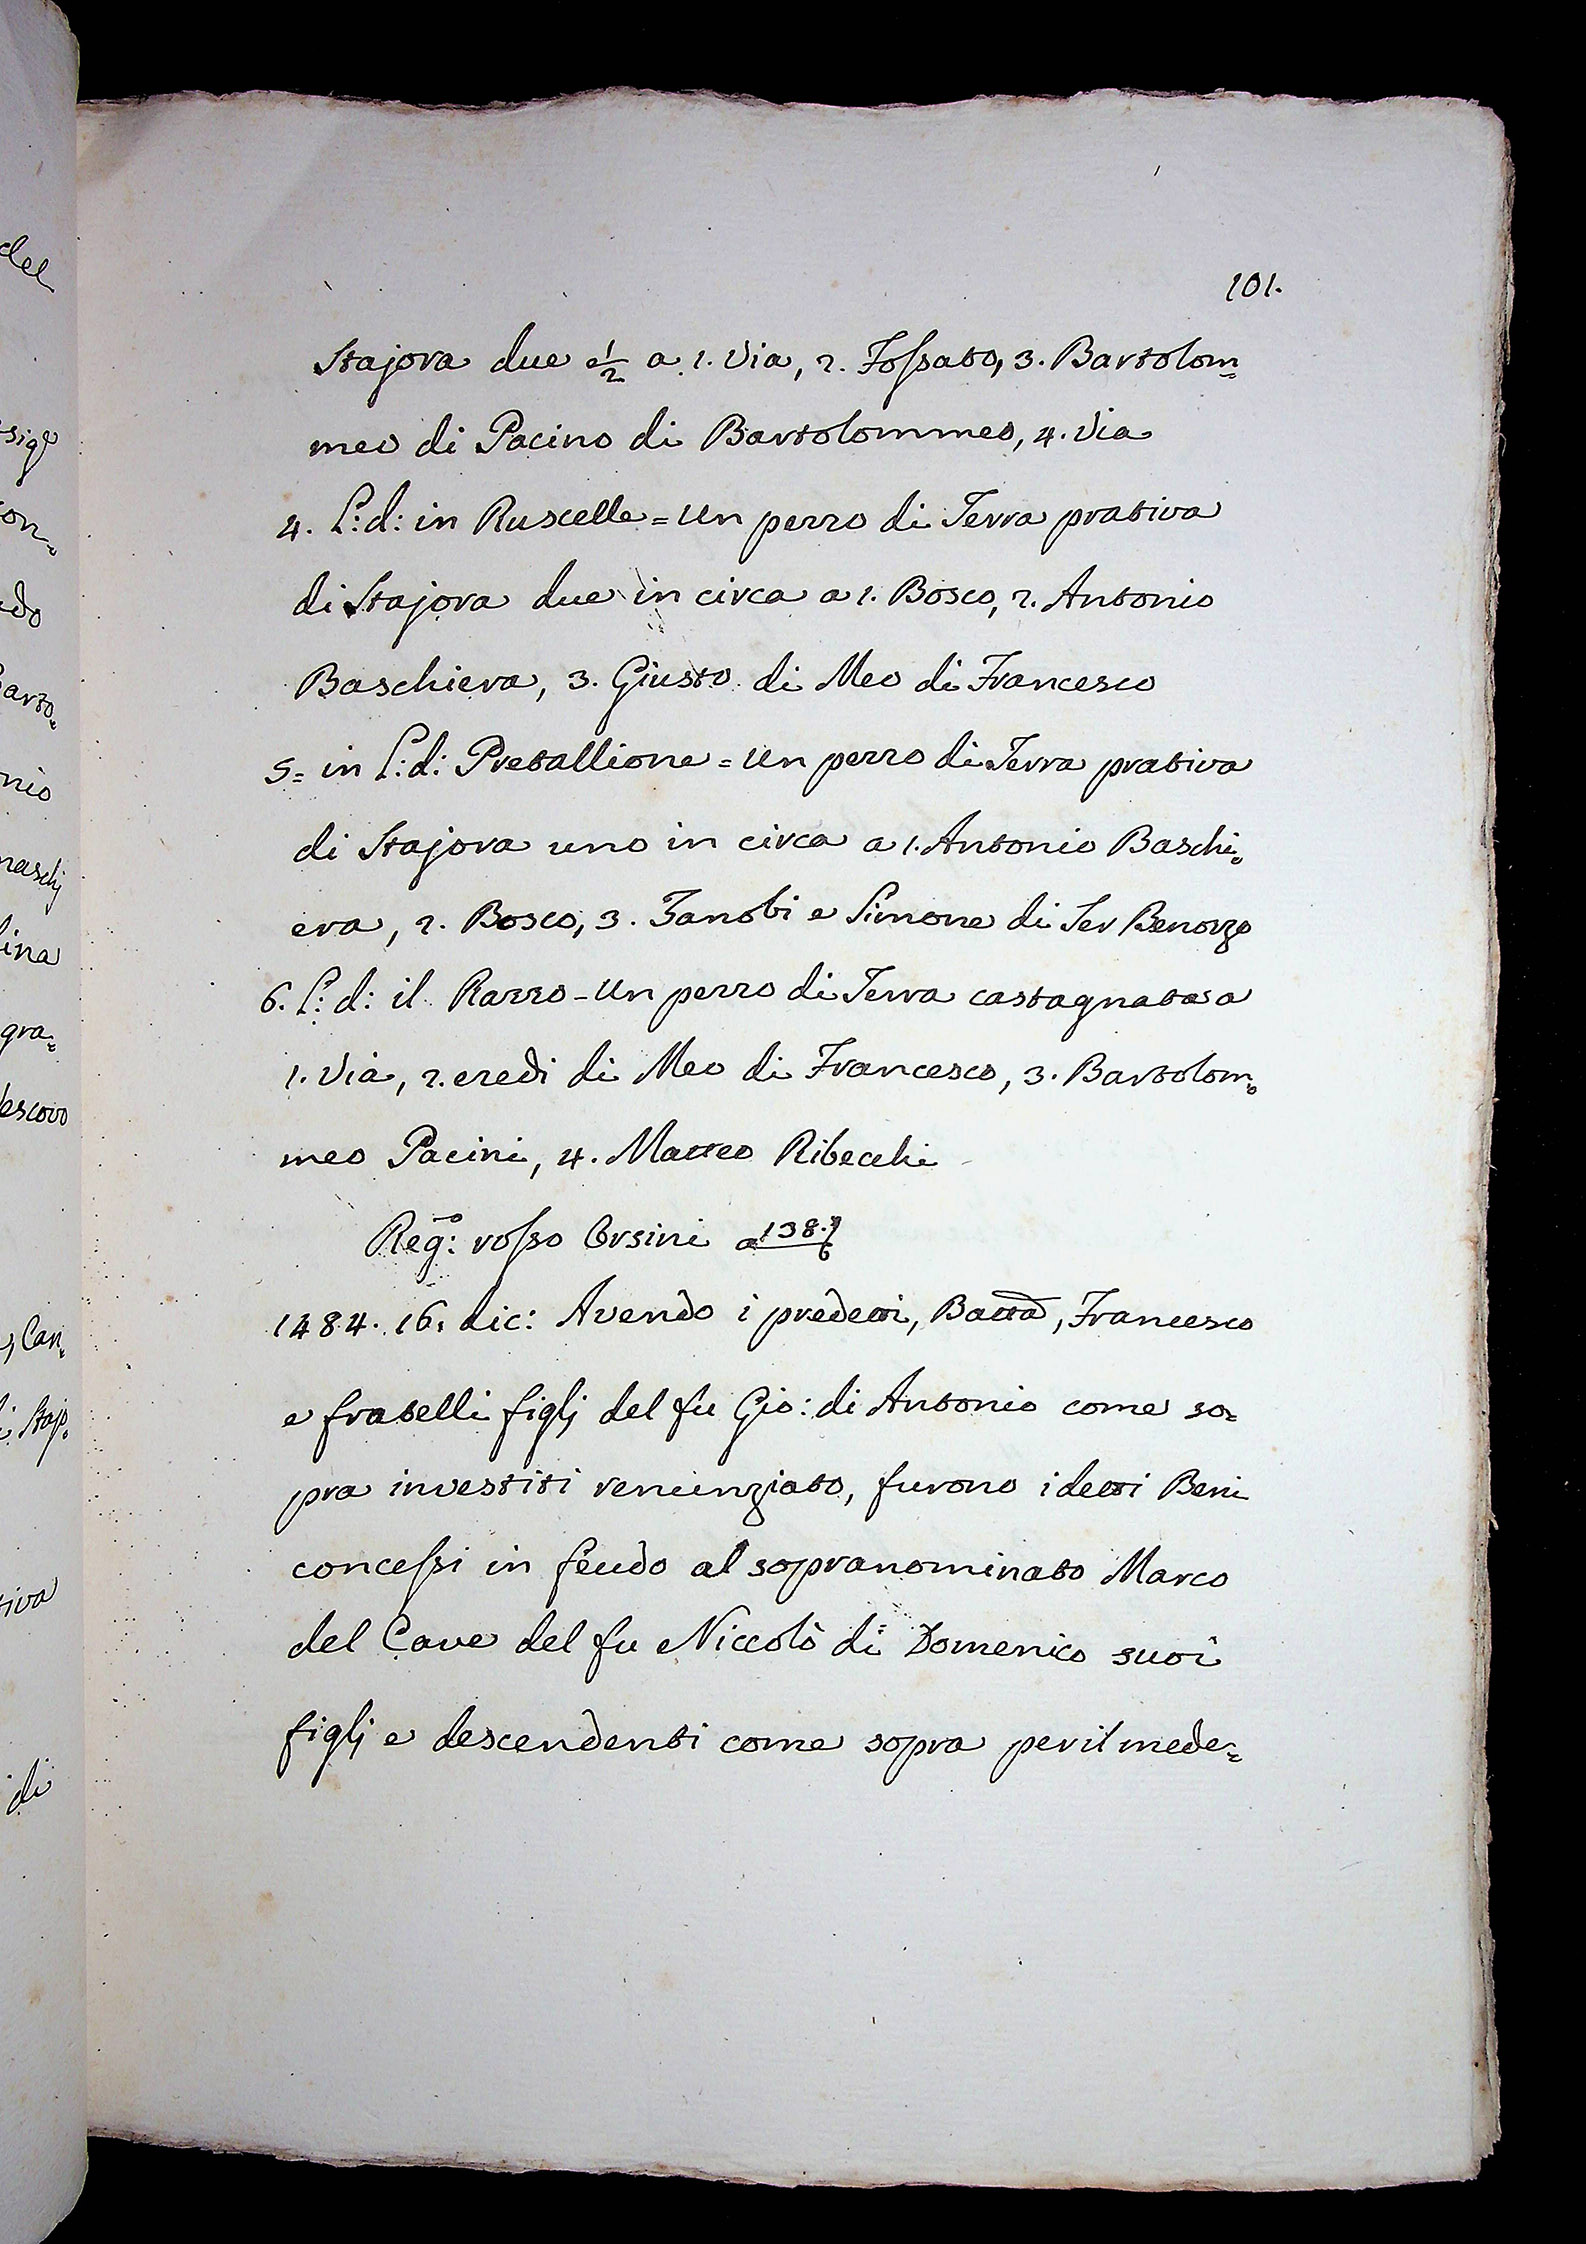 101.
Stajora due e 1/2 a 1. Via, 2. Fossato, 3. Bartolom=
meo di Pacino di Bartolommeo, 4. Via
4. L: d: in Ruscelle = Un pezzo di Terra prativa
di Stajora due in circa a 1. Bosco, 2. Antonio
Baschiera, 3. Giusto di Meo di Francesco
5 = in L: d: Pretallione = Un pezzo di Terra prativa
di Stajora uno in circa a 1. Antonio Baschi=
era, 2. Bosco, 3. Zanobi e Simone di Ser Benozzo
6. L: d: il Razzo - Un pezzo di Terra castagnata a
1. Via, 2. eredi di Meo di Francesco, 3. Bartolom=
meo Pacini, 4. Matteo Ribecchi
Reg:ro rosso Orsini a 138.
1484. 16. dic: Avendo i predetti, Batta, Francesco
e fratelli figlj del fu Gio: di Antonio come so=
pra investiti renunziato, furono i detti Beni
concessi in feudo al sopranominato Marco
del Cave del fu Niccolò di Domenico suoi
figlj e descendenti come sopra per il mede=